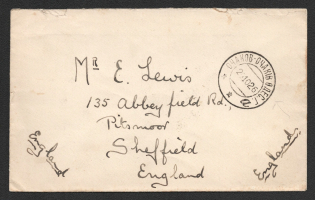 Mr E. Lewis
135 Abbeyfield Rd.,
Pitsmoor
Sheffield
England
England
England